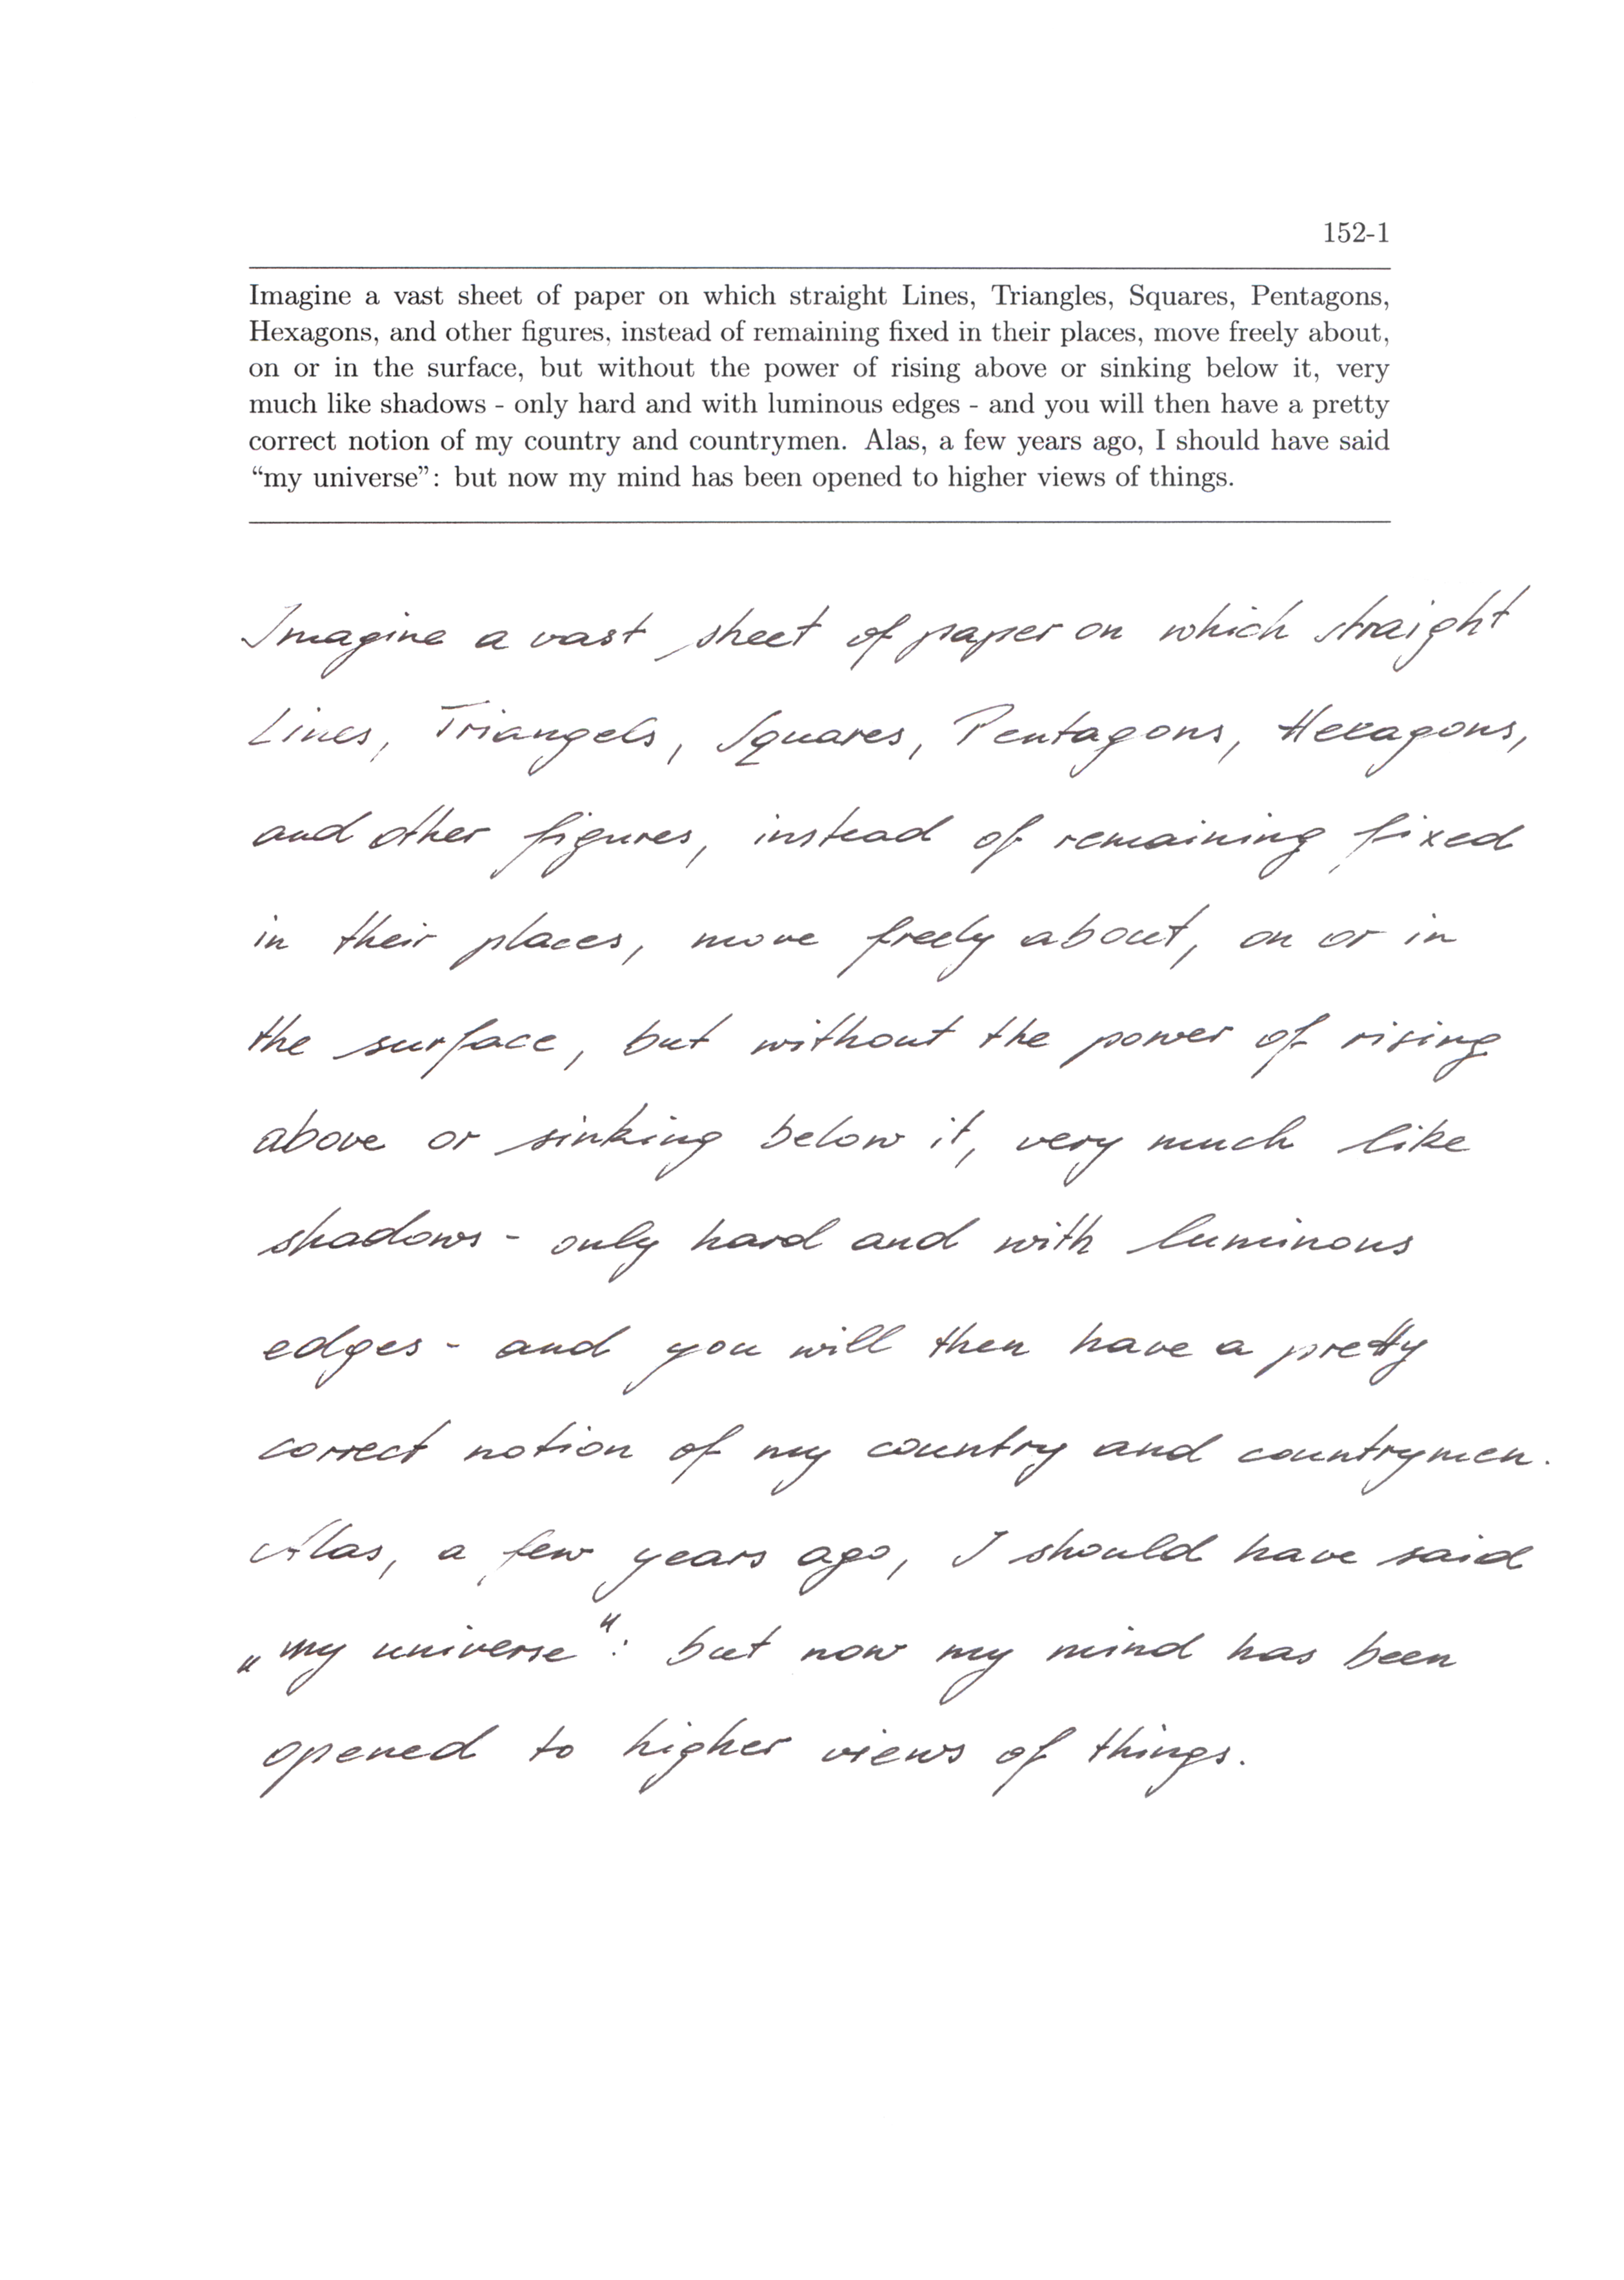 152-1
Imagine a vast sheet of paper on which straight Lines, Triangles, Squares, Pentagons,
Hexagons, and other figures, instead of remaining fixed in their places, move freely about,
on or in the surface, but without the power of rising above or sinking below it, very
much like shadows - only hard and with luminous edges - and you will then have a pretty
correct notion of my country and countrymen. Alas, a few years ago, I should have said
“my universe”: but now my mind has been opened to higher views of things.
Imagine a vast sheet of paper on which straight
Lines, Triangels, Squares, Pentagons, Hexagons,
and other figures, instead of remaining fixed
in their places, move freely about, on or in
the surface, but without the power of rising
above or sinking below it, very much like
shadows - only hard and with luminous
edges - and you will then have a pretty
correct notion of my country and countrymen.
Alas, a few years ago, I should have said
„my universe“: but now my mind has been
opened to higher views of things.